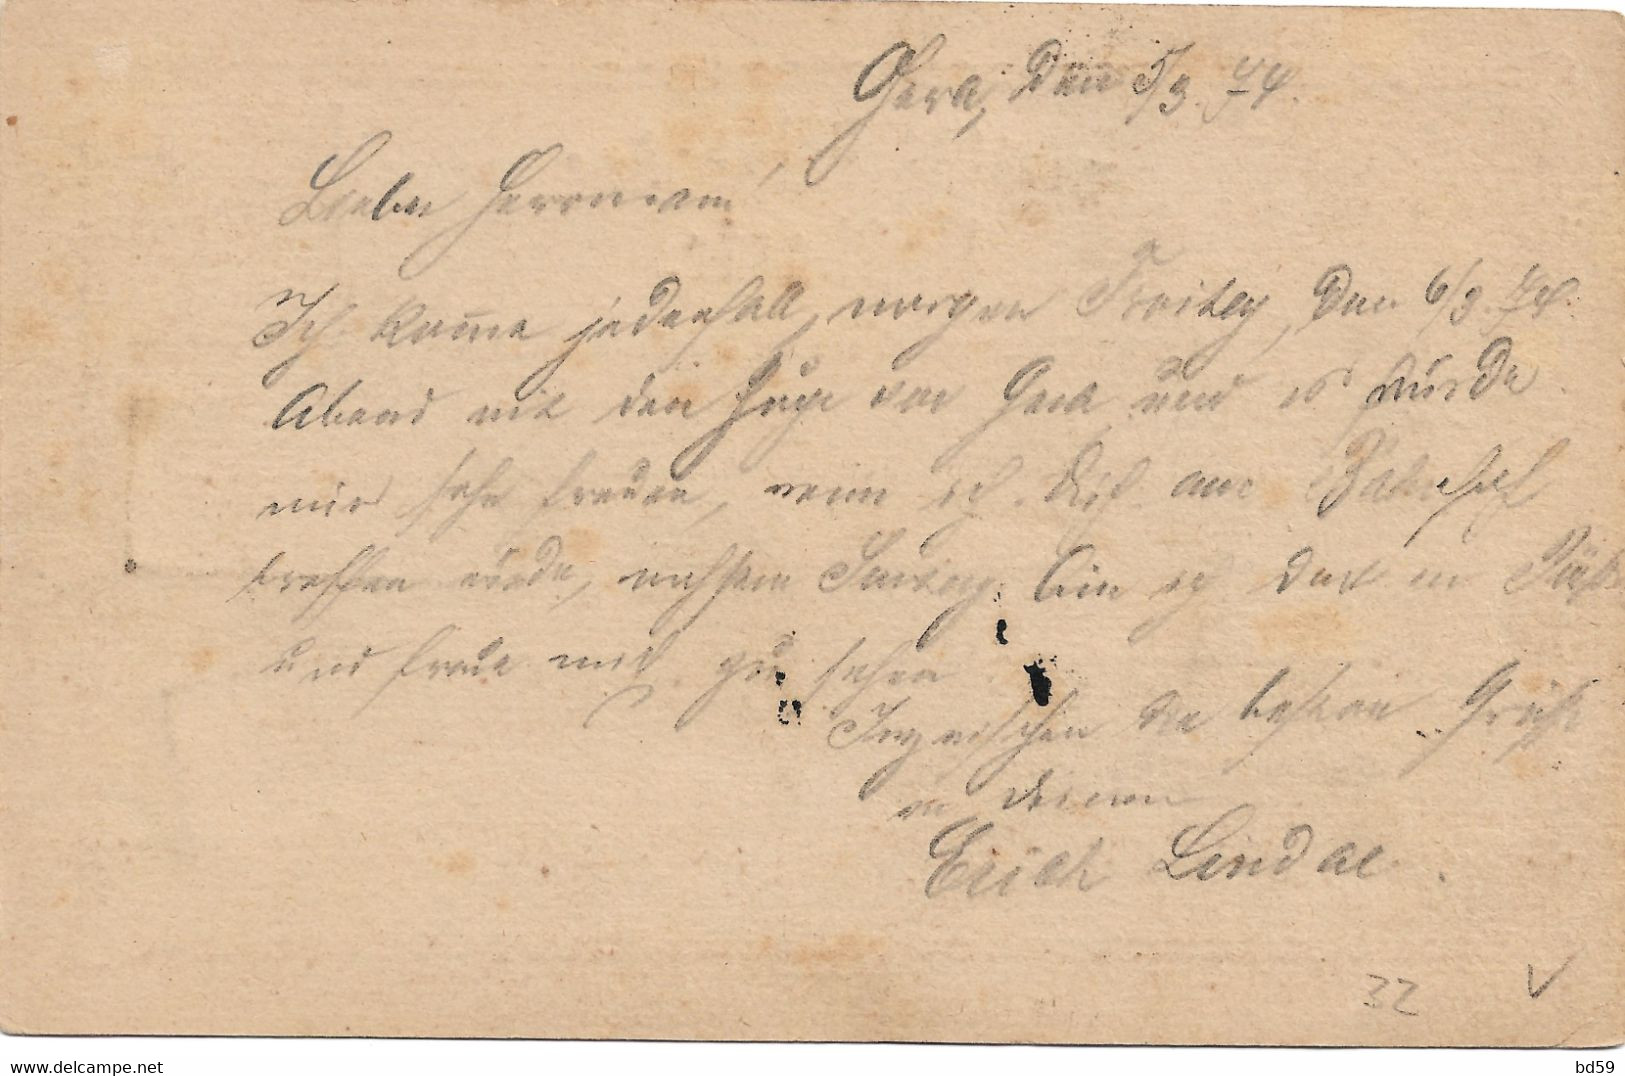 Gera, den 5/3. 74.
Lieber Herrmann!
Ich komme jedenfalls morgen Freitag, den 6/3. 74.
Abend mit den Zuge von Gera und es würde
mir sehr freuen, wenn ich Dich am Bahnhof
treffen würde, nächsten Sonntag bin ich dort in
und freue mich zu sehen
Inzwischen die besten Grüße
von Deinem
Erich Lindae.
32
delcampe.net
bd59